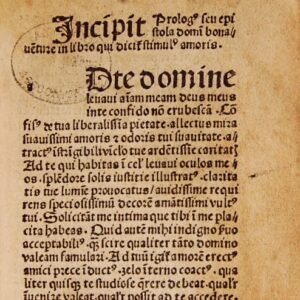 Incipit Prologꝰ seu epi
stola domī bona
uēture in libro qui dicit͛ stimulꝰ amoris.
Dte domine
leuaui aīam meam deus meus
in te confido nō erubescā. Cō
fisꝰ de tua liberalissīa pietate allectus mira
suauissimi amoris & odoris tui suauitate a-
tractꝰ īstrīgibili vīclo tue ardētissīe caritatī
Ad te qui habitas ī cel' leuaui oculos me
os. splēdore solis iustitie illustratꝰ. claritatis
tis tue lumīe prouocatus auidissime requi
rens speciosissimū decorē amātissimi vult'
tui. Solicitat me intima que tibi ī me pla
cita habeas. Quid autē mihi indigno quo
acceptabilꝰ. qȝ scire qualiter tāto domino
valeam famulari. Ad tuū īgit͛ amorē erect
amici prece īductꝰ. zelo īterno coactꝰ. qua
liter quisque te studiose querēdo se debeat.
īuenire valeat. qualiter possit ad te accedere.